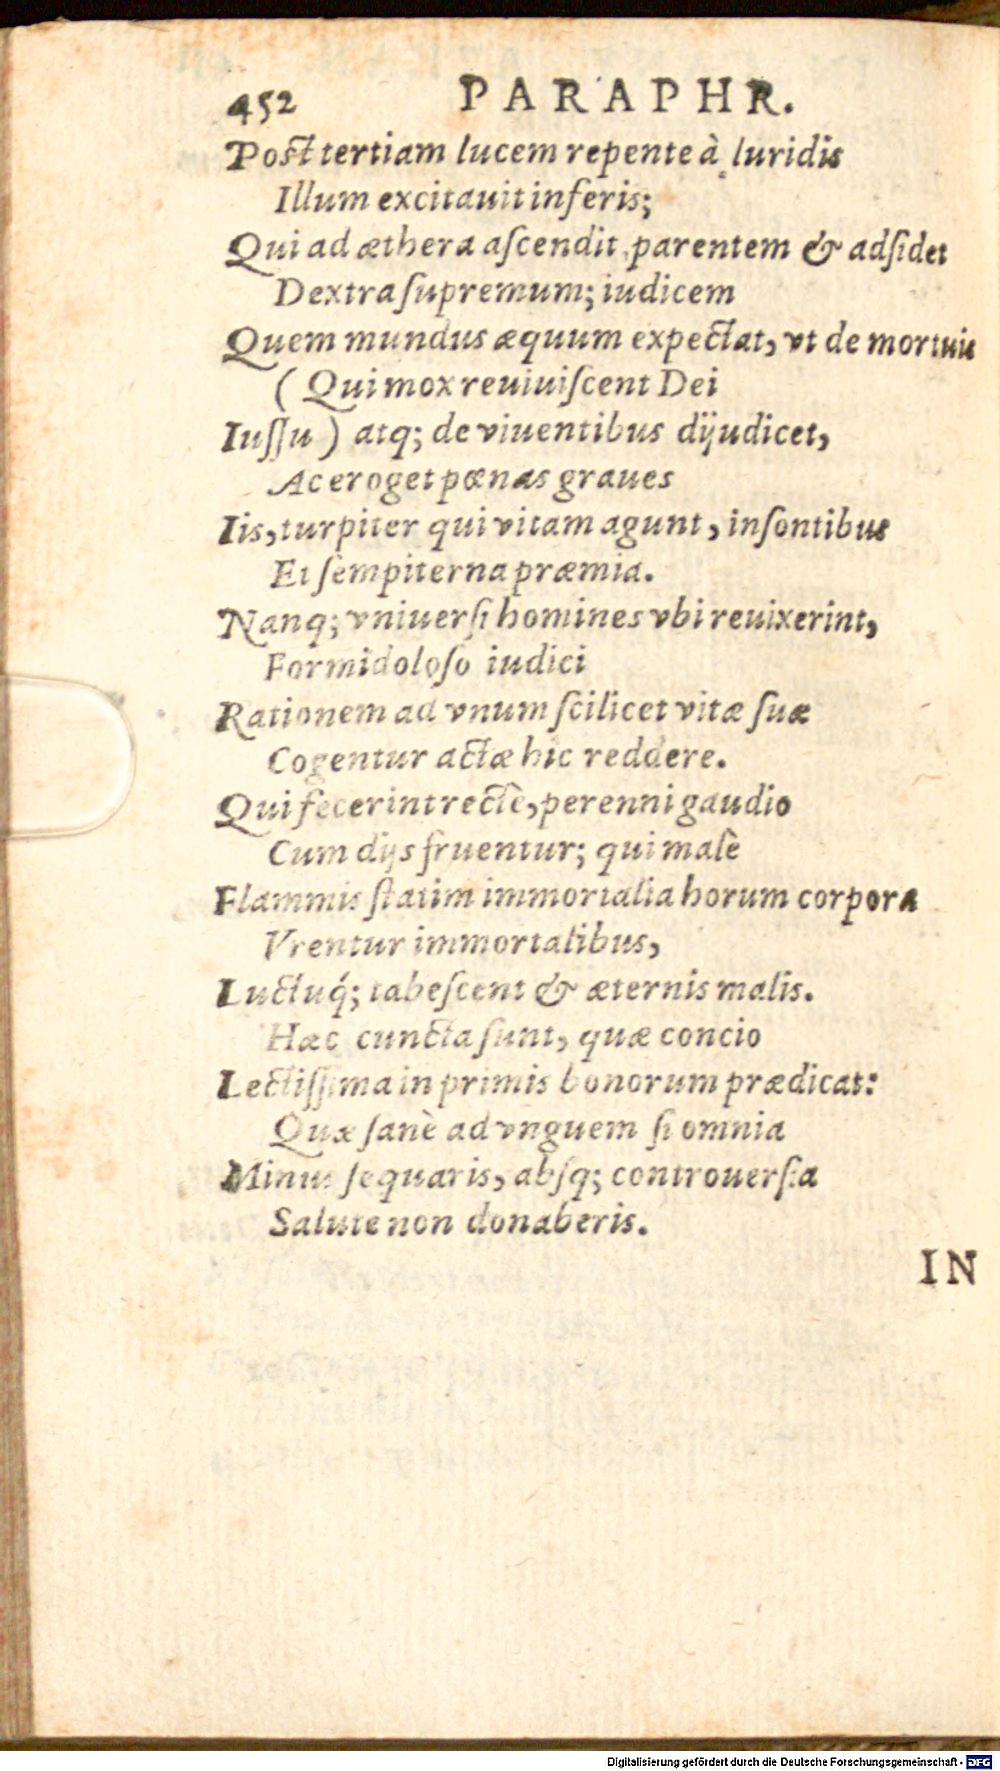 452 PARAPHR.
Post tertiam lucem repente à luridis
Illum excitauit inferis;
Qui ad æthera ascendit, parentem & adsidet
Dextra supremum; iudicem
Quem mundus æquum expectat, vt de mortuis
( Qui mox reuiuiscent Dei
Iussu ) atq; de viuentibus dijudicet,
Ac eroget pœnas graues
Iis, turpiter qui vitam agunt, insontibus
Et sempiterna præmia.
Nanq; vniuersi homines vbi reuixerint,
Formidoloso iudici
Rationem ad vnum scilicet vitæ suæ
Cogentur actæ hic reddere.
Qui fecerint rectè, perenni gaudio
Cum dijs fruentur; qui malè
Flammis statim immortalia horum corpora
Vrentur immortalibus,
Luctuq́; tabescent & æternis malis.
Hæc cuncta sunt, quæ concio
Lectissima in primis bonorum prædicat:
Quæ sanè ad vnguem si omnia
Minus sequaris, absq; controuersia
Salute non donaberis.
IN
Digitalisierung gefördert durch die Deutsche Forschungsgemeinschaft - DFG